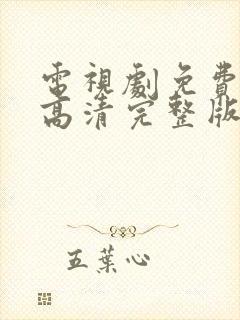 電視劇免費
高清完整版
五葉心